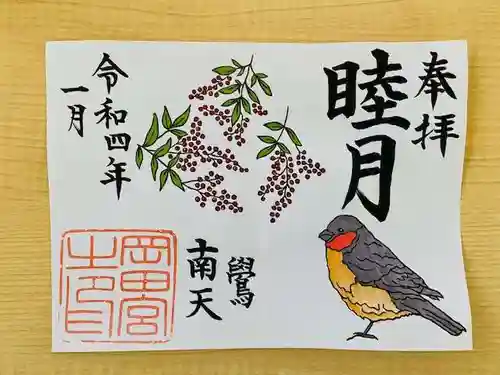 奉拝
睦月
鷽
南天
令和四年
一月
岡田宮